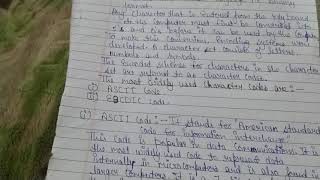 format.
Any character that is entered from the keyboard
of the computer must first be converted into
1's and 0's before it can be used by the computer
To make this conversion, Encoding systems were
developed. A character set consists of letters,
numbers and symbols.
The Encoded scheme for characters in the character
set are referred to as character codes.
The most widely used character codes are :-
(i) ASCII Code.
(ii) EBCDIC Code.
(i) ASCII Code :- It stands for American standard
Code for Information Interchange.
This code is popular in data communications. It is
the most widely used code to represent data
internally in microcomputers and is also found in
larger computers